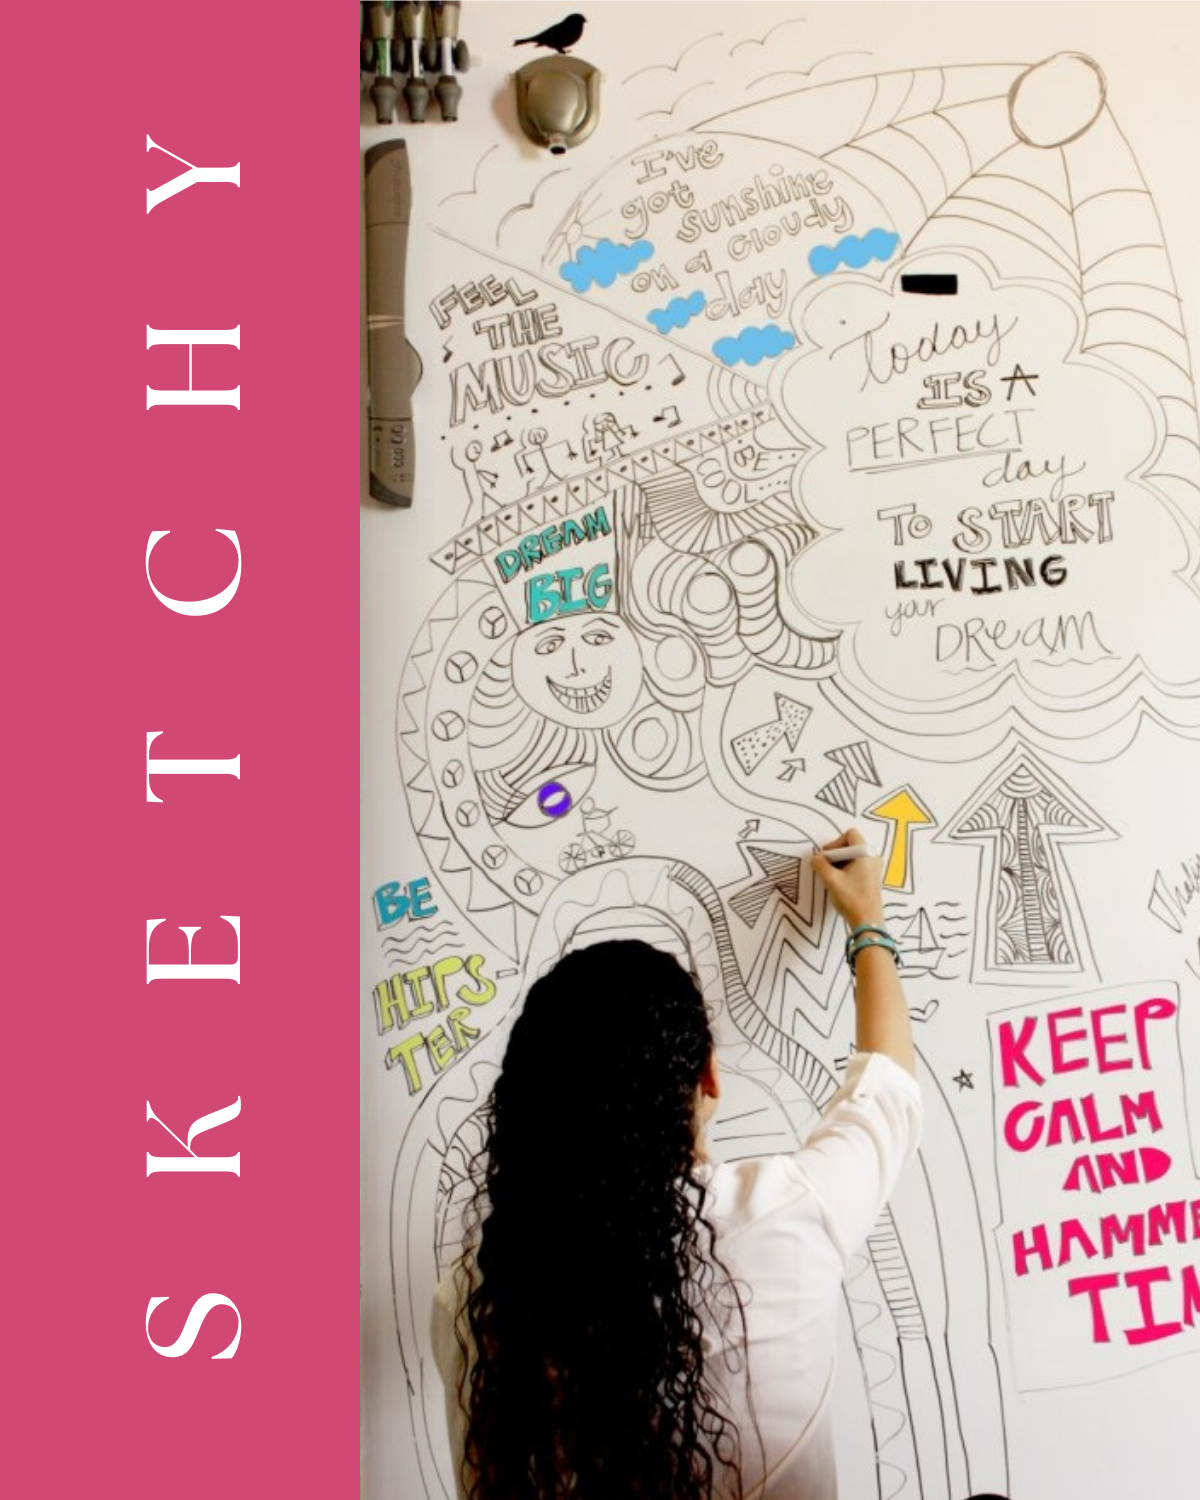 SKETCHY
I've
got sunshine
on a cloudy
day
FEEL
THE
MUSIC
Today
IS A
PERFECT
day
TO START
LIVING
your
DREAM
DREAM
BIG
BE
HIPS-
TER
KEEP
CALM
AND
HAMME
TIM